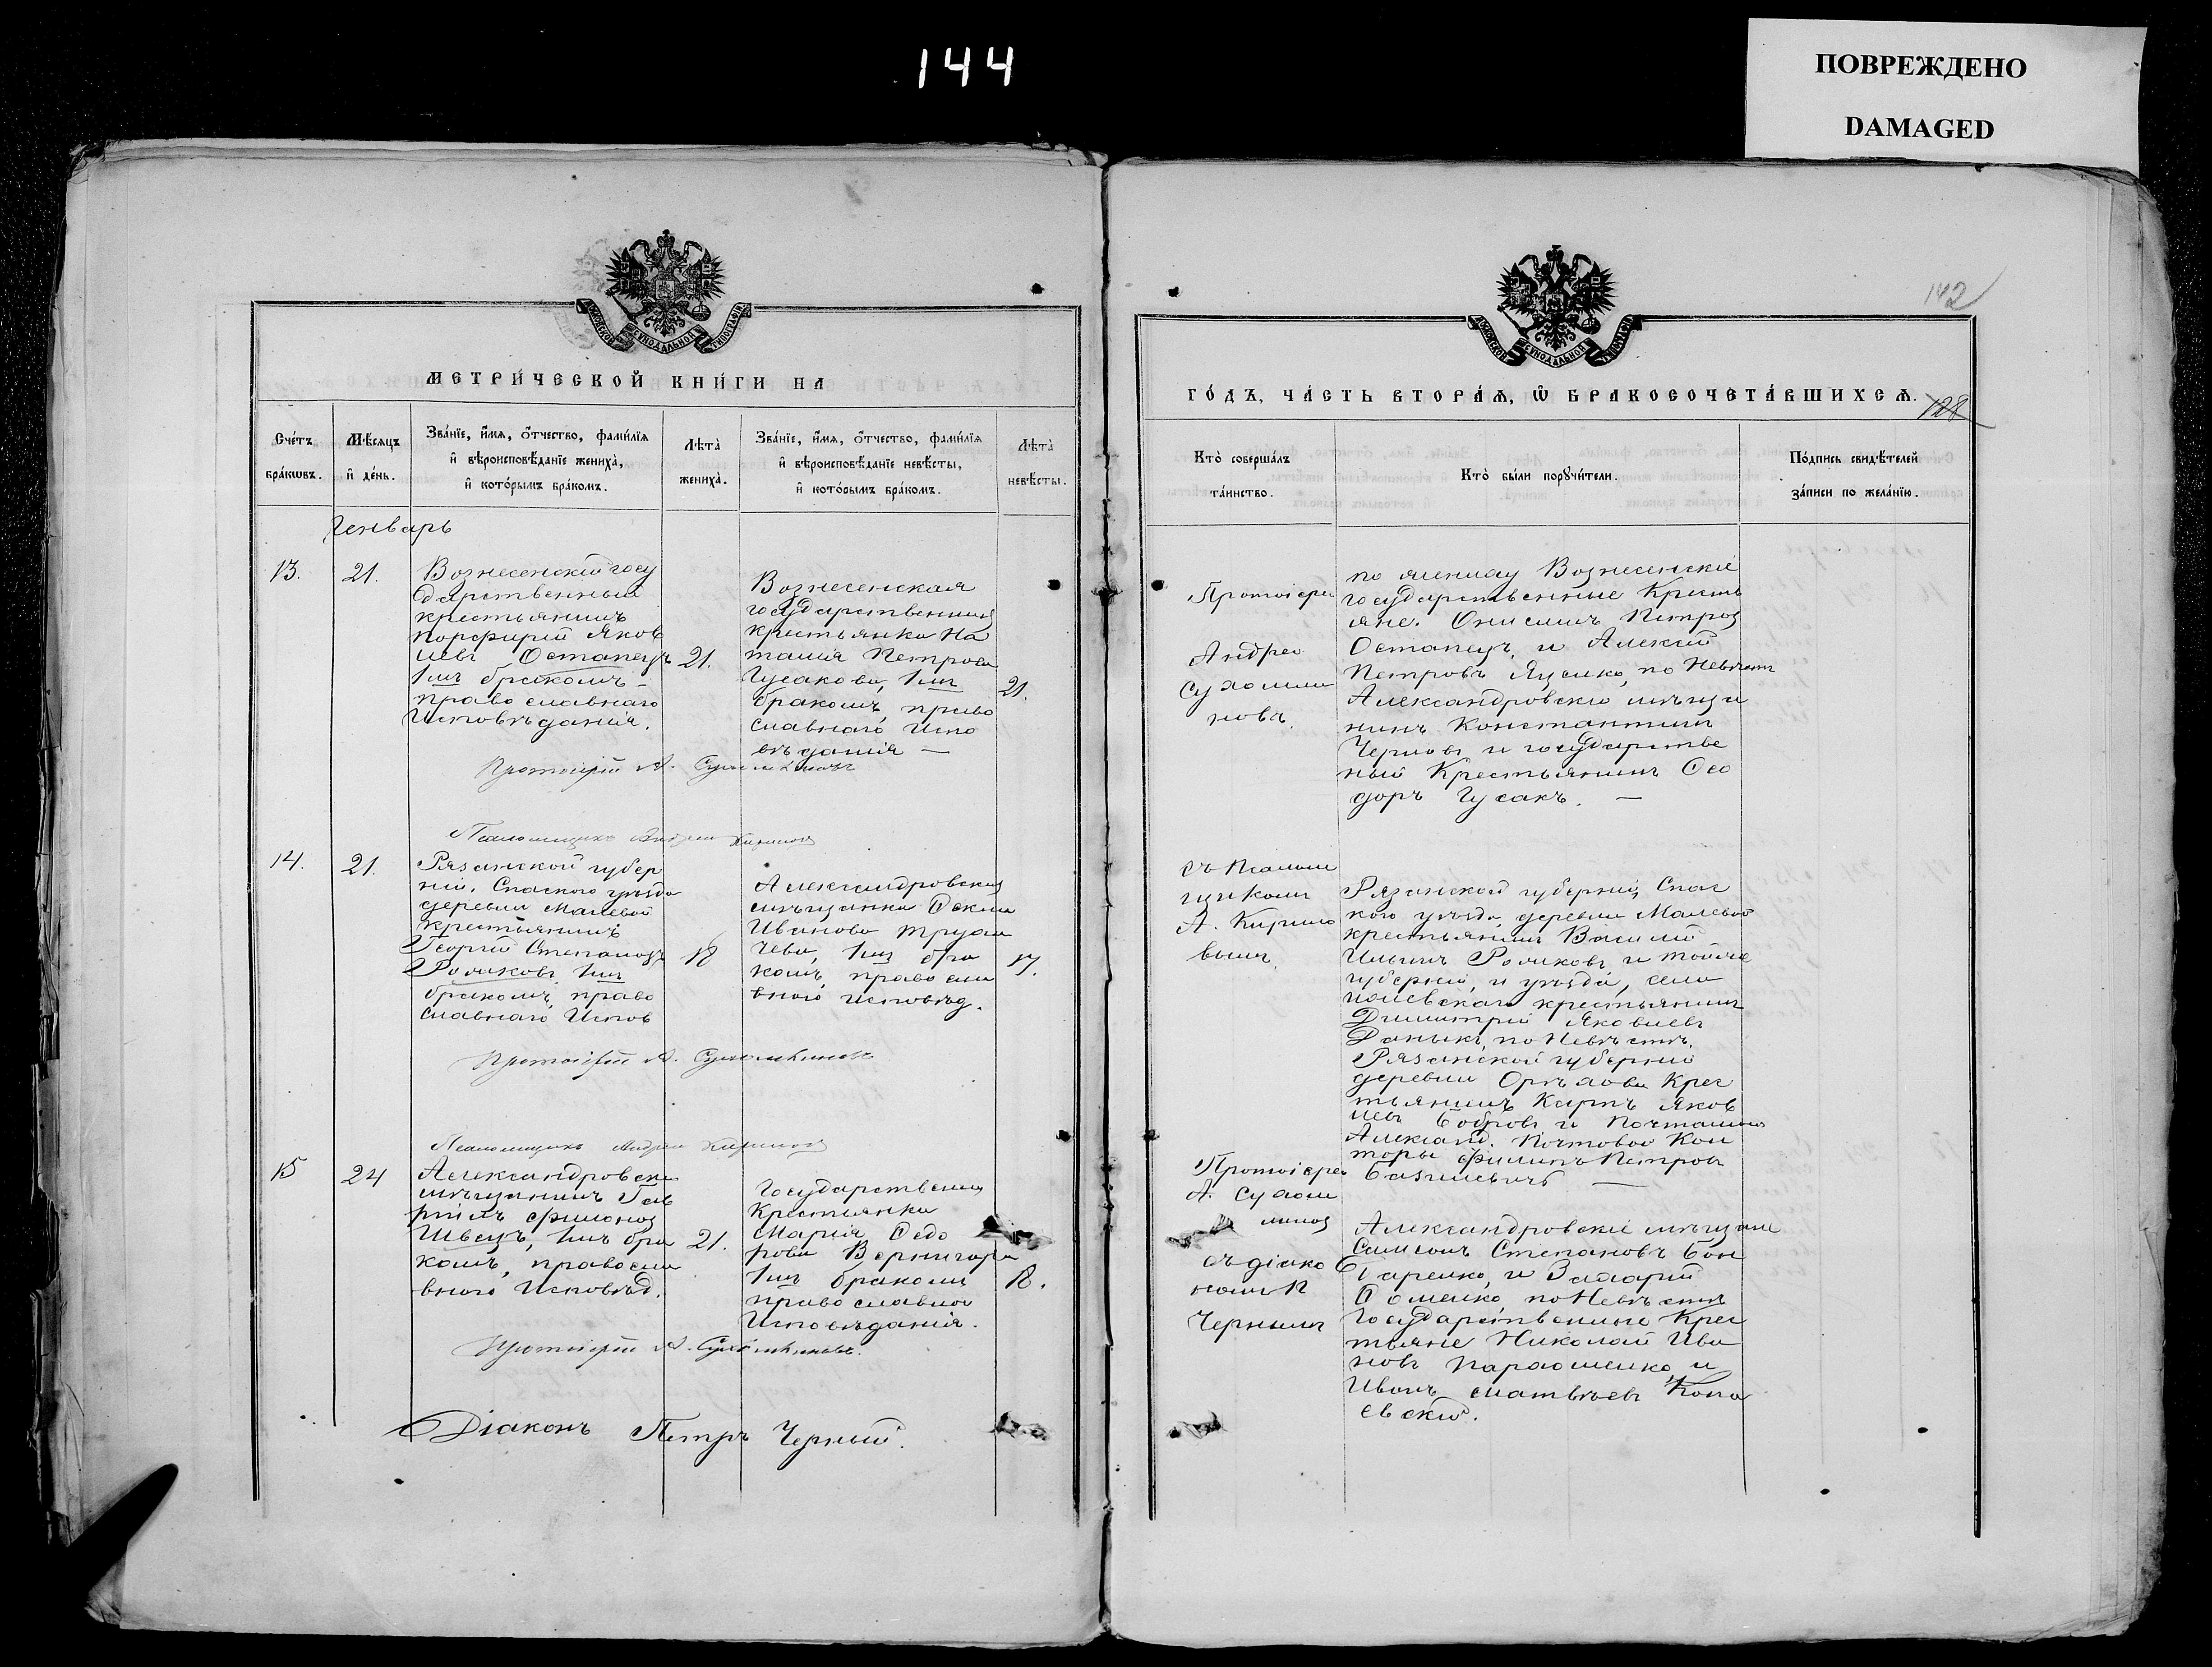 144
ПОВРЕЖДЕНО
DAMAGED
МОСКОВСКОЙ СѴНОДАЛЬНОЙ ТИПОГРАФІИ
МЕТРИ́ЧЕСКОЙ КНИ́ГИ НА
Сче́тъ бра́ковъ.
Мѣ́сяцъ и҆ де́нь.
Зва́нїе, и҆́мѧ, ѻ҆́тчество, фами́лїѧ
и҆ вѣроисповѣ́данїе жениха̀,
и҆ кото́рымъ бра́комъ.
Лѣта̀ жениха̀.
Зва́нїе, и҆́мѧ, ѻ҆́тчество, фами́лїѧ
и҆ вѣроисповѣ́данїе невѣ́сты,
и҆ кото́рымъ бра́комъ.
Лѣта̀ невѣ́сты.
Генварь
13.
21.
Вознесенскій госу
дарственный
крестьянинъ
Порфирій Яков
левъ Остапецъ
1мъ бракомъ –
православнаго
Исповѣданія.
21.
Вознесенская
государственная
крестьянка На
талія Петрова
Гусакова, 1мъ
бракомъ, право
славнаго Испо
вѣданія —
21.
Протоіерей А. Сухомлиновъ
Псаломщикъ Андрей Кириловъ
14.
21.
Рязанской губер
ніи, Спаского уѣзда
деревни Малевой
крестьянинъ
Георгій Степановъ
1мъ
бракомъ, право
славнаго Испов
18
Александровская
мѣщанка
Иванова
чева, 1мъ бра
комъ, правосла
вного исповѣд.
17.
Протоіерей А. Сухомлиновъ
Псаломщикъ Андрей Кириловъ
15
24
Александровскій
мѣщанинъ Гав
ріилъ Филоновъ
Швецъ, 1мъ бра
комъ, правосла
вного Исповѣд.
21.
Государственная
Крестьянка
Марія Ѳедо
рова Вернигора
1мъ бракомъ
православно
Исповѣданія.
18.
Протоіерей А. Сухомлиновъ.
Діаконъ Петръ Черный.
142
МОСКОВСКОЙ СѴНОДАЛЬНОЙ ТИПОГРАФІИ
ГО́ДЪ, ЧА́СТЬ ВТОРА́Ѧ, Ѽ БРАКОСОЧЕТА́ВШИХСѦ.
128
Кто̀ соверша́лъ
та́инство.
Кто̀ бы́ли порꙋчи́тели.
По́дпись свидѣ́телей
за́писи по жела́нїю.
Протоіерей
Андрей
Сухомли
новъ.
по жениху Вознесенскіе
государственные Кресть
яне. Онисимъ Петровъ
Остапецъ, и Алексій
Петровъ Яценко, по Невѣстѣ
Александровскій мѣща
нинъ Константинъ
Черновъ и государстве
ный Крестьянинъ Ѳео
доръ Гусакъ. —
съ Псалом
щикомъ
А. Кирило
вымъ
Рязанской губерніи, Спас
кого уѣзда, деревни Малевой
крестьянинъ Василій
Ильинъ и тойже
губерніи, и уѣзда, села
крестьянинъ
Димитрій Яковлевъ
по Невѣстѣ.
Рязанской губерніи
деревни Орѣхова Крес
тьянинъ Карпъ Яков
левъ Бобровъ, и Почталіонъ
Александ. Почтовой Кон
торы Филипъ Петровъ
Базилевичъ —
Протоіерей
А. Сухом
линовъ
съ діако
номъ П
Чернымъ
Александровскіе мѣщане
Самсонъ Степановъ Бон
даренко, и Захарій
Ѳоменко, по Невѣстѣ
Государственные Крес
тьяне Николай Ива
новъ Пархоменко, и
Иванъ Матвѣевъ Копа
евскій.